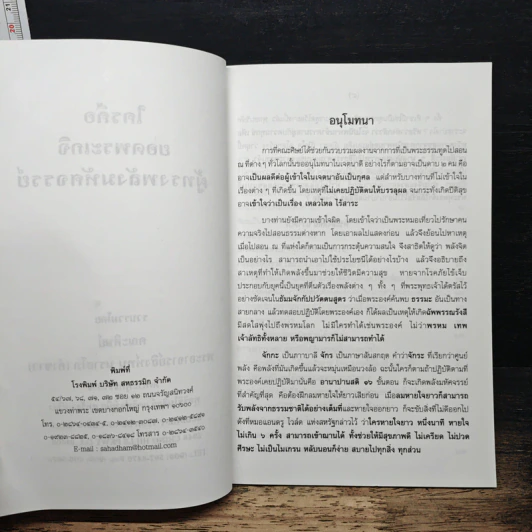 พิมพ์ที่
โรงพิมพ์ บริษัท สหธรรมิก จำกัด
แขวงท่าพระ เขตบางกอกใหญ่ กรุงเทพฯ ๑๐๖๐๐
E-mail : sahadham@hotmail.com
อนุโมทนา
การที่คณะศิษย์ได้ช่วยกันรวบรวมผลงานจากการที่เป็นพระธรรมทูตไปสอน
ณ ที่ต่าง ๆ ทั่วโลกนั้นขออนุโมทนาในเจตนาดี อย่างไรก็ตามอาจเป็นดาบ ๒ คม คือ
อาจเป็นผลดีต่อผู้เข้าใจในเจตนาอันเป็นกุศล แต่สำหรับบางท่านที่ไม่เข้าใจใน
เรื่องต่าง ๆ ที่เกิดขึ้น โดยเหตุที่ไม่เคยปฏิบัติตนให้บรรลุผล จนกระทั่งเกิดปีติสุข
อาจเข้าใจว่าเป็นเรื่อง เหลวไหล ไร้สาระ
บางท่านยังมีความเข้าใจผิด โดยเข้าใจว่าเป็นพระหมอเที่ยวไปรักษาคน
ความจริงไปสอนธรรมต่างหาก โดยเอาผลไปแสดงก่อน แล้วจึงย้อนไปหาเหตุ
เมื่อไปสอน ณ ที่แห่งใดก็ตามเป็นการกระตุ้นความสนใจ จึงสาธิตให้ดูว่า พลังจิต
เป็นอย่างไร สามารถนำเอาไปใช้ประโยชน์ได้อย่างไรบ้าง แล้วจึงอธิบายถึง
สาเหตุที่ทำให้เกิดพลังขึ้นมาช่วยให้ชีวิตมีความสุข หายจากโรคภัยไข้เจ็บ
ประกอบกับยุคนี้เป็นยุคที่ตื่นตัวเรื่องพลังต่าง ๆ ทั้ง ๆ ที่พระพุทธเจ้าได้ตรัสไว้
อย่างชัดเจนในธัมมจักกัปปวัตตนสูตร ว่าเมื่อพระองค์ค้นพบ ธรรมะ อันเป็นทาง
สายกลาง แล้วทดสอบปฏิบัติโดยพระองค์เอง ก็ได้ผลเป็นเหตุให้เกิดฉัพพรรณรังสี
มีสดใสพุ่งไปถึงพรหมโลก ไม่มีใครทำได้เช่นพระองค์ ไม่ว่าพรหม เทพ
เจ้าลัทธิทั้งหลาย หรือพญามารก็ไม่สามารถทำได้
จักกะ เป็นภาษาบาลี จักร เป็นภาษาสันสกฤต คำว่าจักระ ที่เรียกว่าศูนย์
พลัง คือพลังที่มันเกิดขึ้นแล้วจะหมุนเหมือนวงล้อ ฉะนั้นใครก็ตามถ้าปฏิบัติตามที่
พระองค์เคยปฏิบัติมานั่นคือ อานาปานสติ ๑๖ ขั้นตอน ก็จะเกิดพลังมหัศจรรย์
ที่สำคัญที่สุด คือต้องฝึกลมหายใจให้ยาวละเอียดก่อน เมื่อลมหายใจยาวก็สามารถ
รับพลังจากธรรมชาติได้อย่างเต็มที่และหายใจออกยาว ก็จะขับสิ่งที่ไม่ดีออกไป
ไม่เกิน ๖ ครั้ง สามารถเข้าฌานได้ ทั้งช่วยให้มีสุขภาพดี ไม่เครียด ไม่ปวด
ศีรษะ ไม่เป็นไมเกรน หลับนอนก็ง่าย สบายไปทุกสิ่ง ทุกส่วน